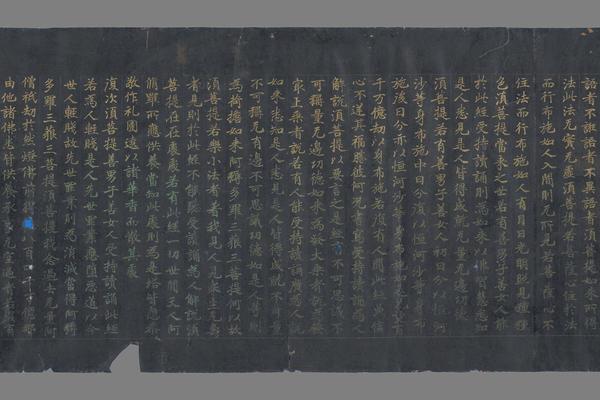 語者不誑語者不異語者須菩提如來所得
法此法无實无虛須菩提若菩薩心住於法
而行布施如人入闇則无所見若菩薩心不
住法而行布施如人有目日光明照見種種
色須菩提當來之世若有善男子善女人能
於此經受持讀誦則為如來以佛智慧悉知
是人悉見是人皆得成就无量无邊功德
須菩提若有善男子善女人初日分以恒河
沙等身布施中日分復以恒河沙等身布
施後日分亦以恒河沙等身布施如是无量百
千万億劫以身布施若復有人聞此經典信
心不逆其福勝彼何況書寫受持讀誦為人
解說須菩提以要言之是經有不可思議不
可稱量无邊功德如來為發大乘者說為發
最上乘者說若有人能受持讀誦廣為人說
如來悉知是人悉見是人皆得成就不可量
不可稱无有邊不可思議功德如是人等則
為荷擔如來阿耨多羅三藐三菩提何以故
須菩提若樂小法者著我見人見眾生見壽
者見則於此經不能聽受讀誦為人解說須
菩提在在處處若有此經一切世間天人阿
脩羅所應供養當知此處則為是塔皆應恭
敬作礼圍遶以諸華香而散其處
復次須菩提善男子善女人受持讀誦此經
若為人輕賤是人先世罪業應墮惡道以今
世人輕賤故先世罪業則為消滅當得阿耨
多羅三藐三菩提須菩提我念過去无量阿
僧祇劫於然燈佛前得值八百四千万億那
由他諸佛悉皆供養承事无空過者若復有